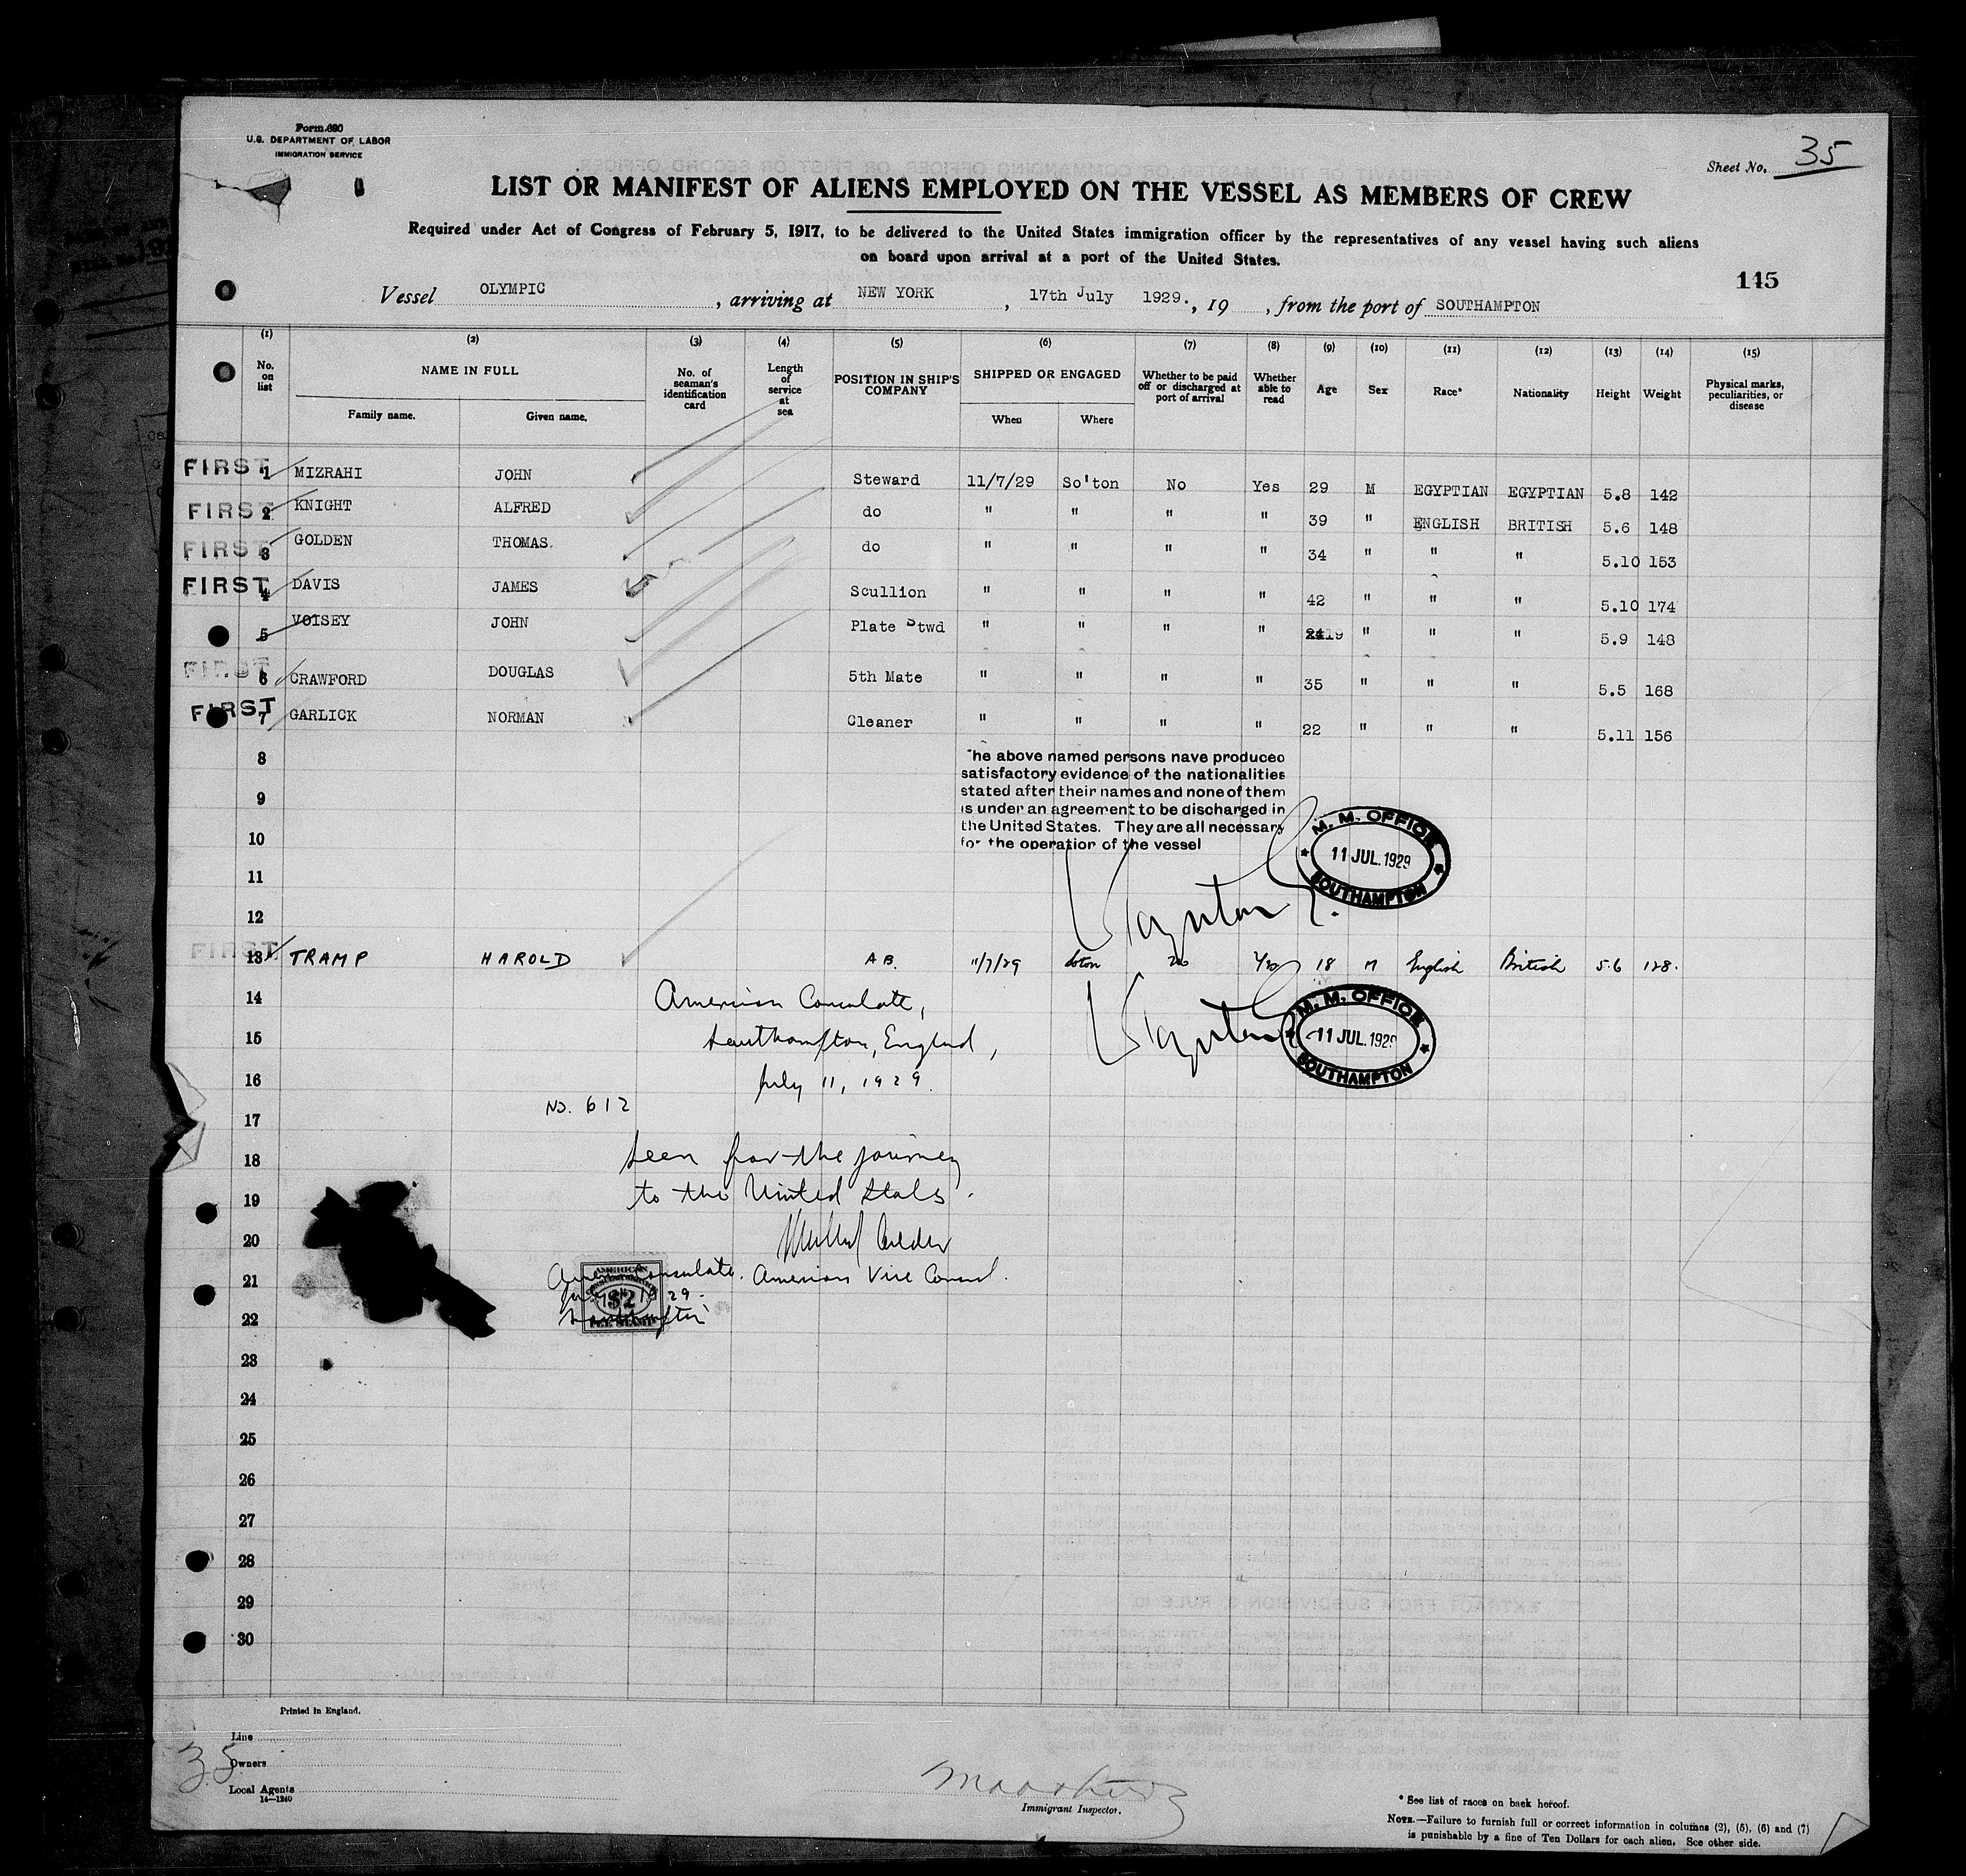 Form 690
U.S. DEPARTMENT OF LABOR
IMMIGRATION SERVICE
Sheet No. 35
LIST OR MANIFEST OF ALIENS EMPLOYED ON THE VESSEL AS MEMBERS OF CREW
Required under Act of Congress of February 5, 1917, to be delivered to the United States immigration officer by the representatives of any vessel having such aliens
on board upon arrival at a port of the United States.
145
Vessel OLYMPIC, arriving at NEW YORK, 17th July 1929., 19 , from the port of SOUTHAMPTON
(1) (2) (3) (4) (5) (6) (7) (8) (9) (10) (11) (12) (13) (14) (15)
No. on list NAME IN FULL No. of seaman's identification card Length of service at sea POSITION IN SHIP'S COMPANY SHIPPED OR ENGAGED Whether to be paid off or discharged at port of arrival Whether able to read Age Sex Race* Nationality Height Weight Physical marks, peculiarities, or disease
Family name. Given name. When Where
FIRST 1 MIZRAHI JOHN Steward 11/7/29 So'ton No Yes 29 M EGYPTIAN EGYPTIAN 5.8 142
FIRST 2 KNIGHT ALFRED do " " " " 39 " ENGLISH BRITISH 5.6 148
FIRST 3 GOLDEN THOMAS. do " " " " 34 " " " 5.10 153
FIRST 4 DAVIS JAMES Scullion " " " " 42 " " " 5.10 174
5 VOISEY JOHN Plate Stwd " " " " 19 " " " 5.9 148
FIRST 6 CRAWFORD DOUGLAS 5th Mate " " " " 35 " " " 5.5 168
FIRST 7 GARLICK NORMAN Cleaner " " " " 22 " " " 5.11 156
8
he above named persons have produced
satisfactory evidence of the nationalities
9
stated after their names and none of them
is under an agreement to be discharged in
the United States. They are all necessary
10
for the operation of the vessel
M. M. OFFICE
11 JUL. 1929
SOUTHAMPTON
11
12
FIRST 13 TRAMP HAROLD A B. 11/7/29 Soton No Yes 18 M English British 5.6 128.
14 American Consulate,
15 Southampton, England,
M. M. OFFICE
11 JUL. 1929
SOUTHAMPTON
16 July 11, 1929.
No. 612
17
18 Seen for the journey
19 to the United States.
20
21 American Vice Consul.
Amer. Consulate.
AMERICAN
$2
FEE STAMP
29.
Southampton
22
23
24
25
26
27
28
29
30
Printed in England.
Line
35
Owners
Local Agents
14—1240
Immigrant Inspector.
* See list of races on back hereof.
NOTE.—Failure to furnish full or correct information in columns (2), (5), (6) and (7)
is punishable by a fine of Ten Dollars for each alien. See other side.